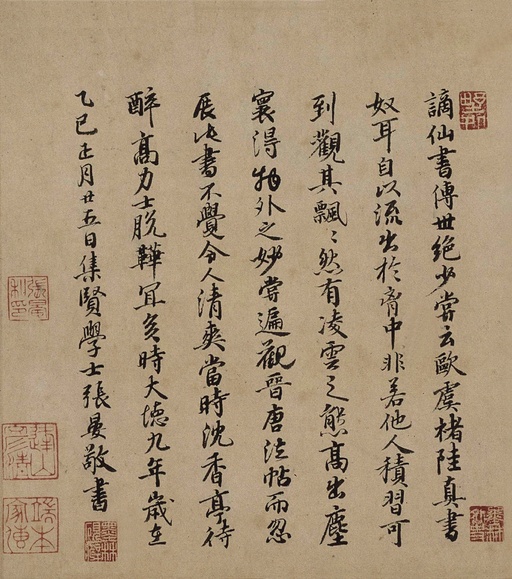 謫仙書傳世絕少嘗云歐虞楮陸真書
奴耳自以流出於胷中非若他人積習可
到觀其飄〻然有凌雲之態高出塵
寰得物外之妙嘗遍觀晉唐法帖而忽
展此書不覺令人清爽當時沈香亭待
醉高力士脫鞾冝矣時大德九年歲在
乙巳正月廿五日集賢學士張晏敬書
張晏私印
端本家傳